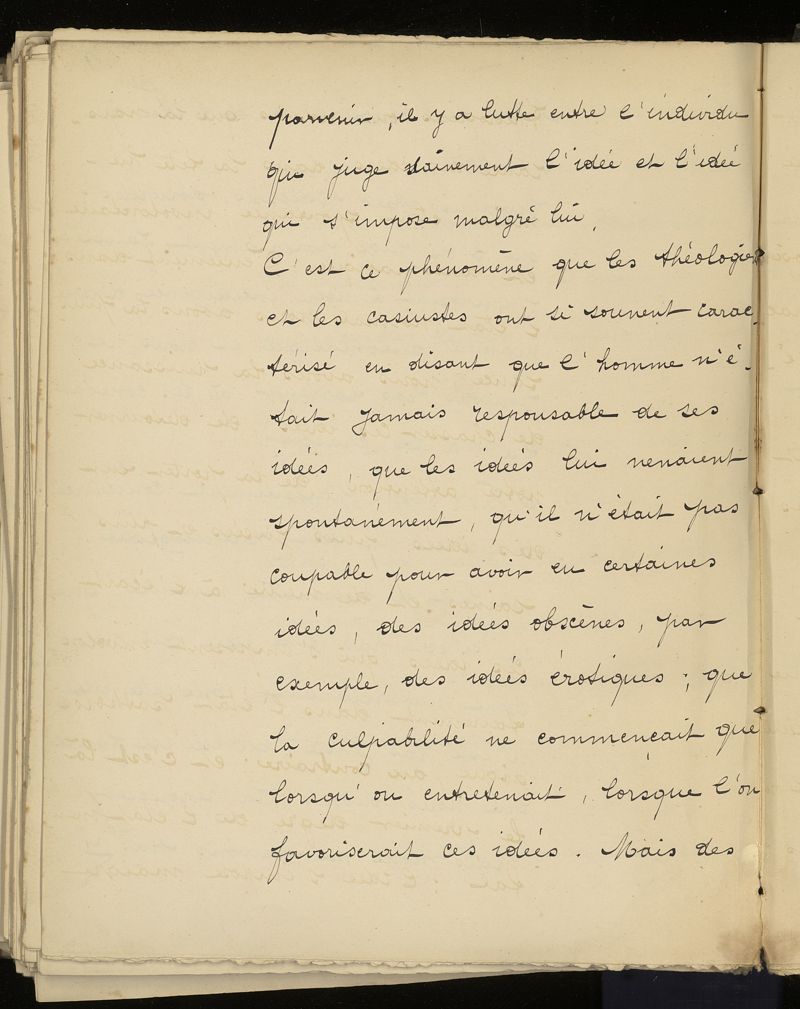 parvenir, il y a lutte entre l'individu
qui juge sainement l'idée et l'idée
qui s'impose malgré lui.
C'est ce phénomène que les théologiens
et les casuistes ont si souvent carac-
térisé en disant que l'homme n'é-
tait jamais responsable de ses
idées, que les idées lui venaient
spontanément, qu'il n'était pas
coupable pour avoir eu certaines
idées, des idées obscènes, par
exemple, des idées érotiques ; que
la culpabilité ne commencait que
lorsqu'on entretenait, lorsque l'on
favoriserait ces idées. Mais des